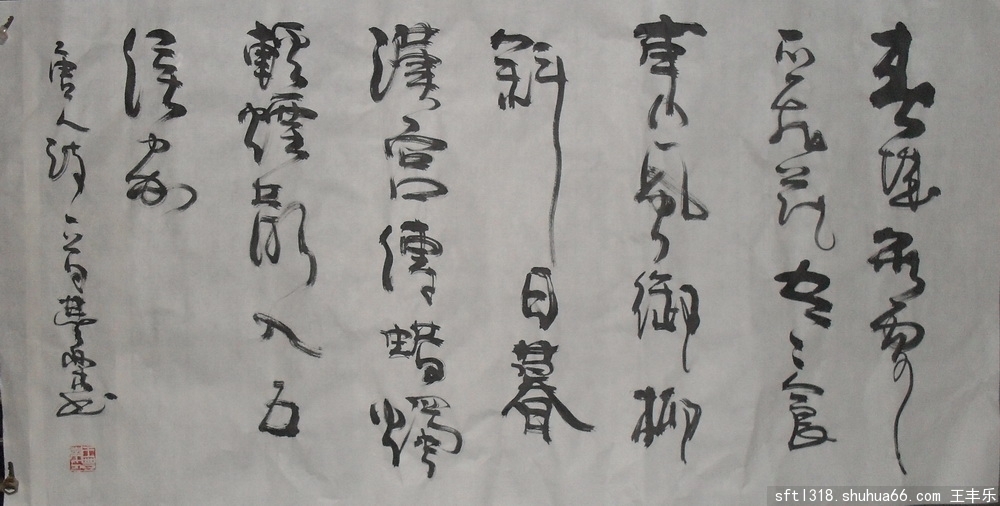 春城無處
不飛花寒食
東風御柳
斜日暮
漢宮傳蠟燭
輕煙散入五
侯家
唐人詩一首豐樂書
sftl318.shuhua66.com 王丰乐